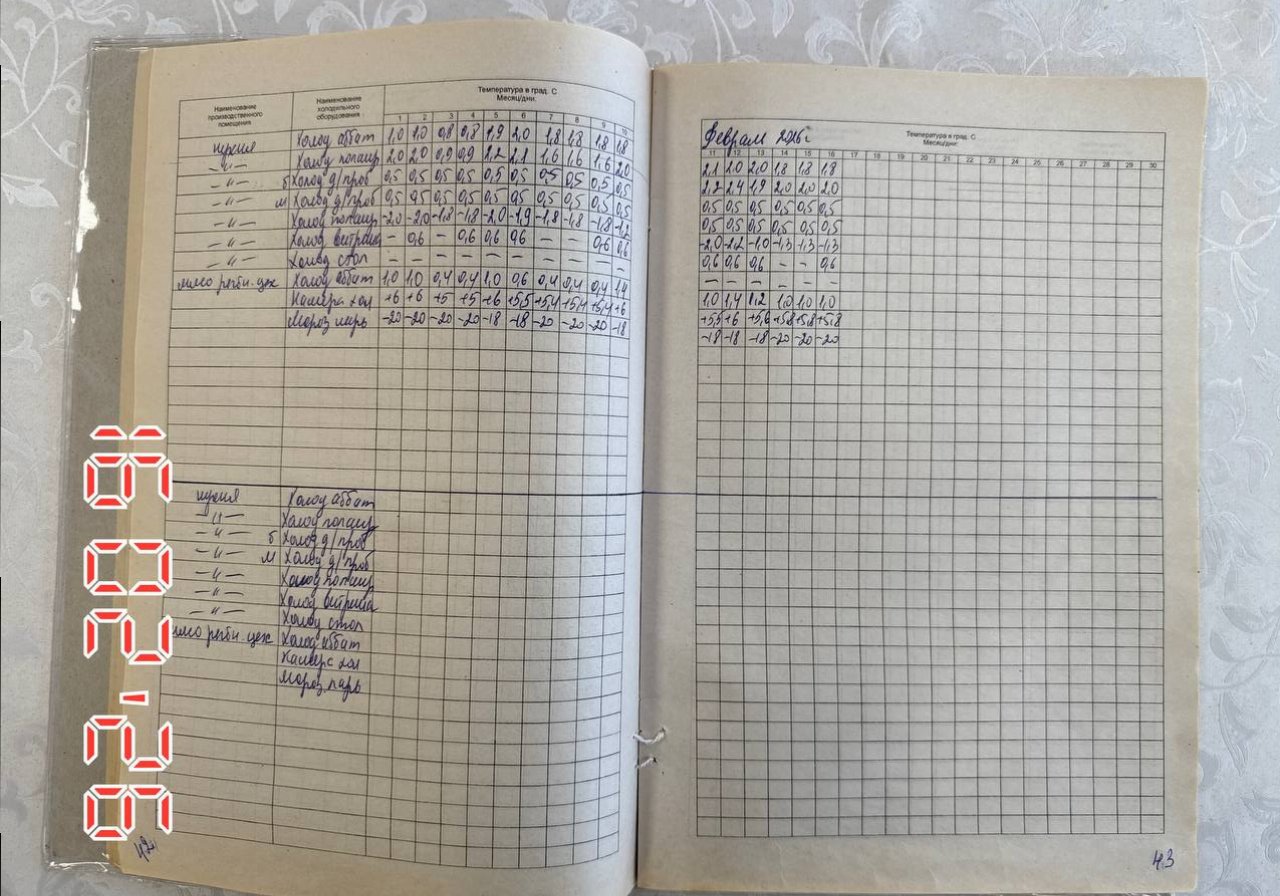 Наименование производственного помещения
Наименование холодильного оборудования
Температура в град. С
Месяц/дни:
1 2 3 4 5 6 7 8 9 10
кухня Холод аббат 1,0 1,0 0,8 0,8 1,9 2,0 1,8 1,8 1,8 1,8
—"— Холод 2,0 2,0 0,9 0,9 2,2 2,1 1,6 1,6 1,6 2,0
—"— б Холод д/проб 0,5 0,5 0,5 0,5 0,5 0,5 0,5 0,5 0,5 0,5
—"— м Холод д/проб 0,5 0,5 0,5 0,5 0,5 0,5 0,5 0,5 0,5 0,5
—"— Холод -2,0 -2,0 -1,8 -1,8 -2,0 -1,9 -1,8 -1,8 -1,8 -1,2
—"— Холод витрина — 0,6 — 0,6 0,6 0,6 — — 0,6 0,6
—"— Холод стол — — — — — — — — — —
мясо рыбн. цех Холод аббат 1,0 1,0 0,4 0,4 1,0 0,6 0,4 0,4 0,4 1,4
Камера хол +6 +6 +5 +5 +6 +5,5 +5,4 +5,4 +5,4 +6
Мороз ларь -20 -20 -20 -20 -18 -18 -20 -20 -20 -18
кухня Холод аббат
—"— Холод
—"— б Холод д/проб
—"— м Холод д/проб
—"— Холод
—"— Холод витрина
—"— Холод стол
мясо рыбн. цех Холод аббат
Камера хол
Мороз ларь
42
Феврал 2026г
Температура в град. С
Месяц/дни:
11 12 13 14 15 16 17 18 19 20 21 22 23 24 25 26 27 28 29 30
2,1 2,0 2,0 1,8 1,8 1,8
2,2 2,4 1,9 2,0 2,0 2,0
0,5 0,5 0,5 0,5 0,5 0,5
0,5 0,5 0,5 0,5 0,5 0,5
-2,0 -2,2 -1,0 -1,3 -1,3 -1,3
0,6 0,6 0,6 — — 0,6
— — — — — —
1,0 1,4 1,2 1,0 1,0 1,0
+5,5 +6 +5,6 +5,8 +5,8 +5,8
-18 -18 -18 -20 -20 -20
43